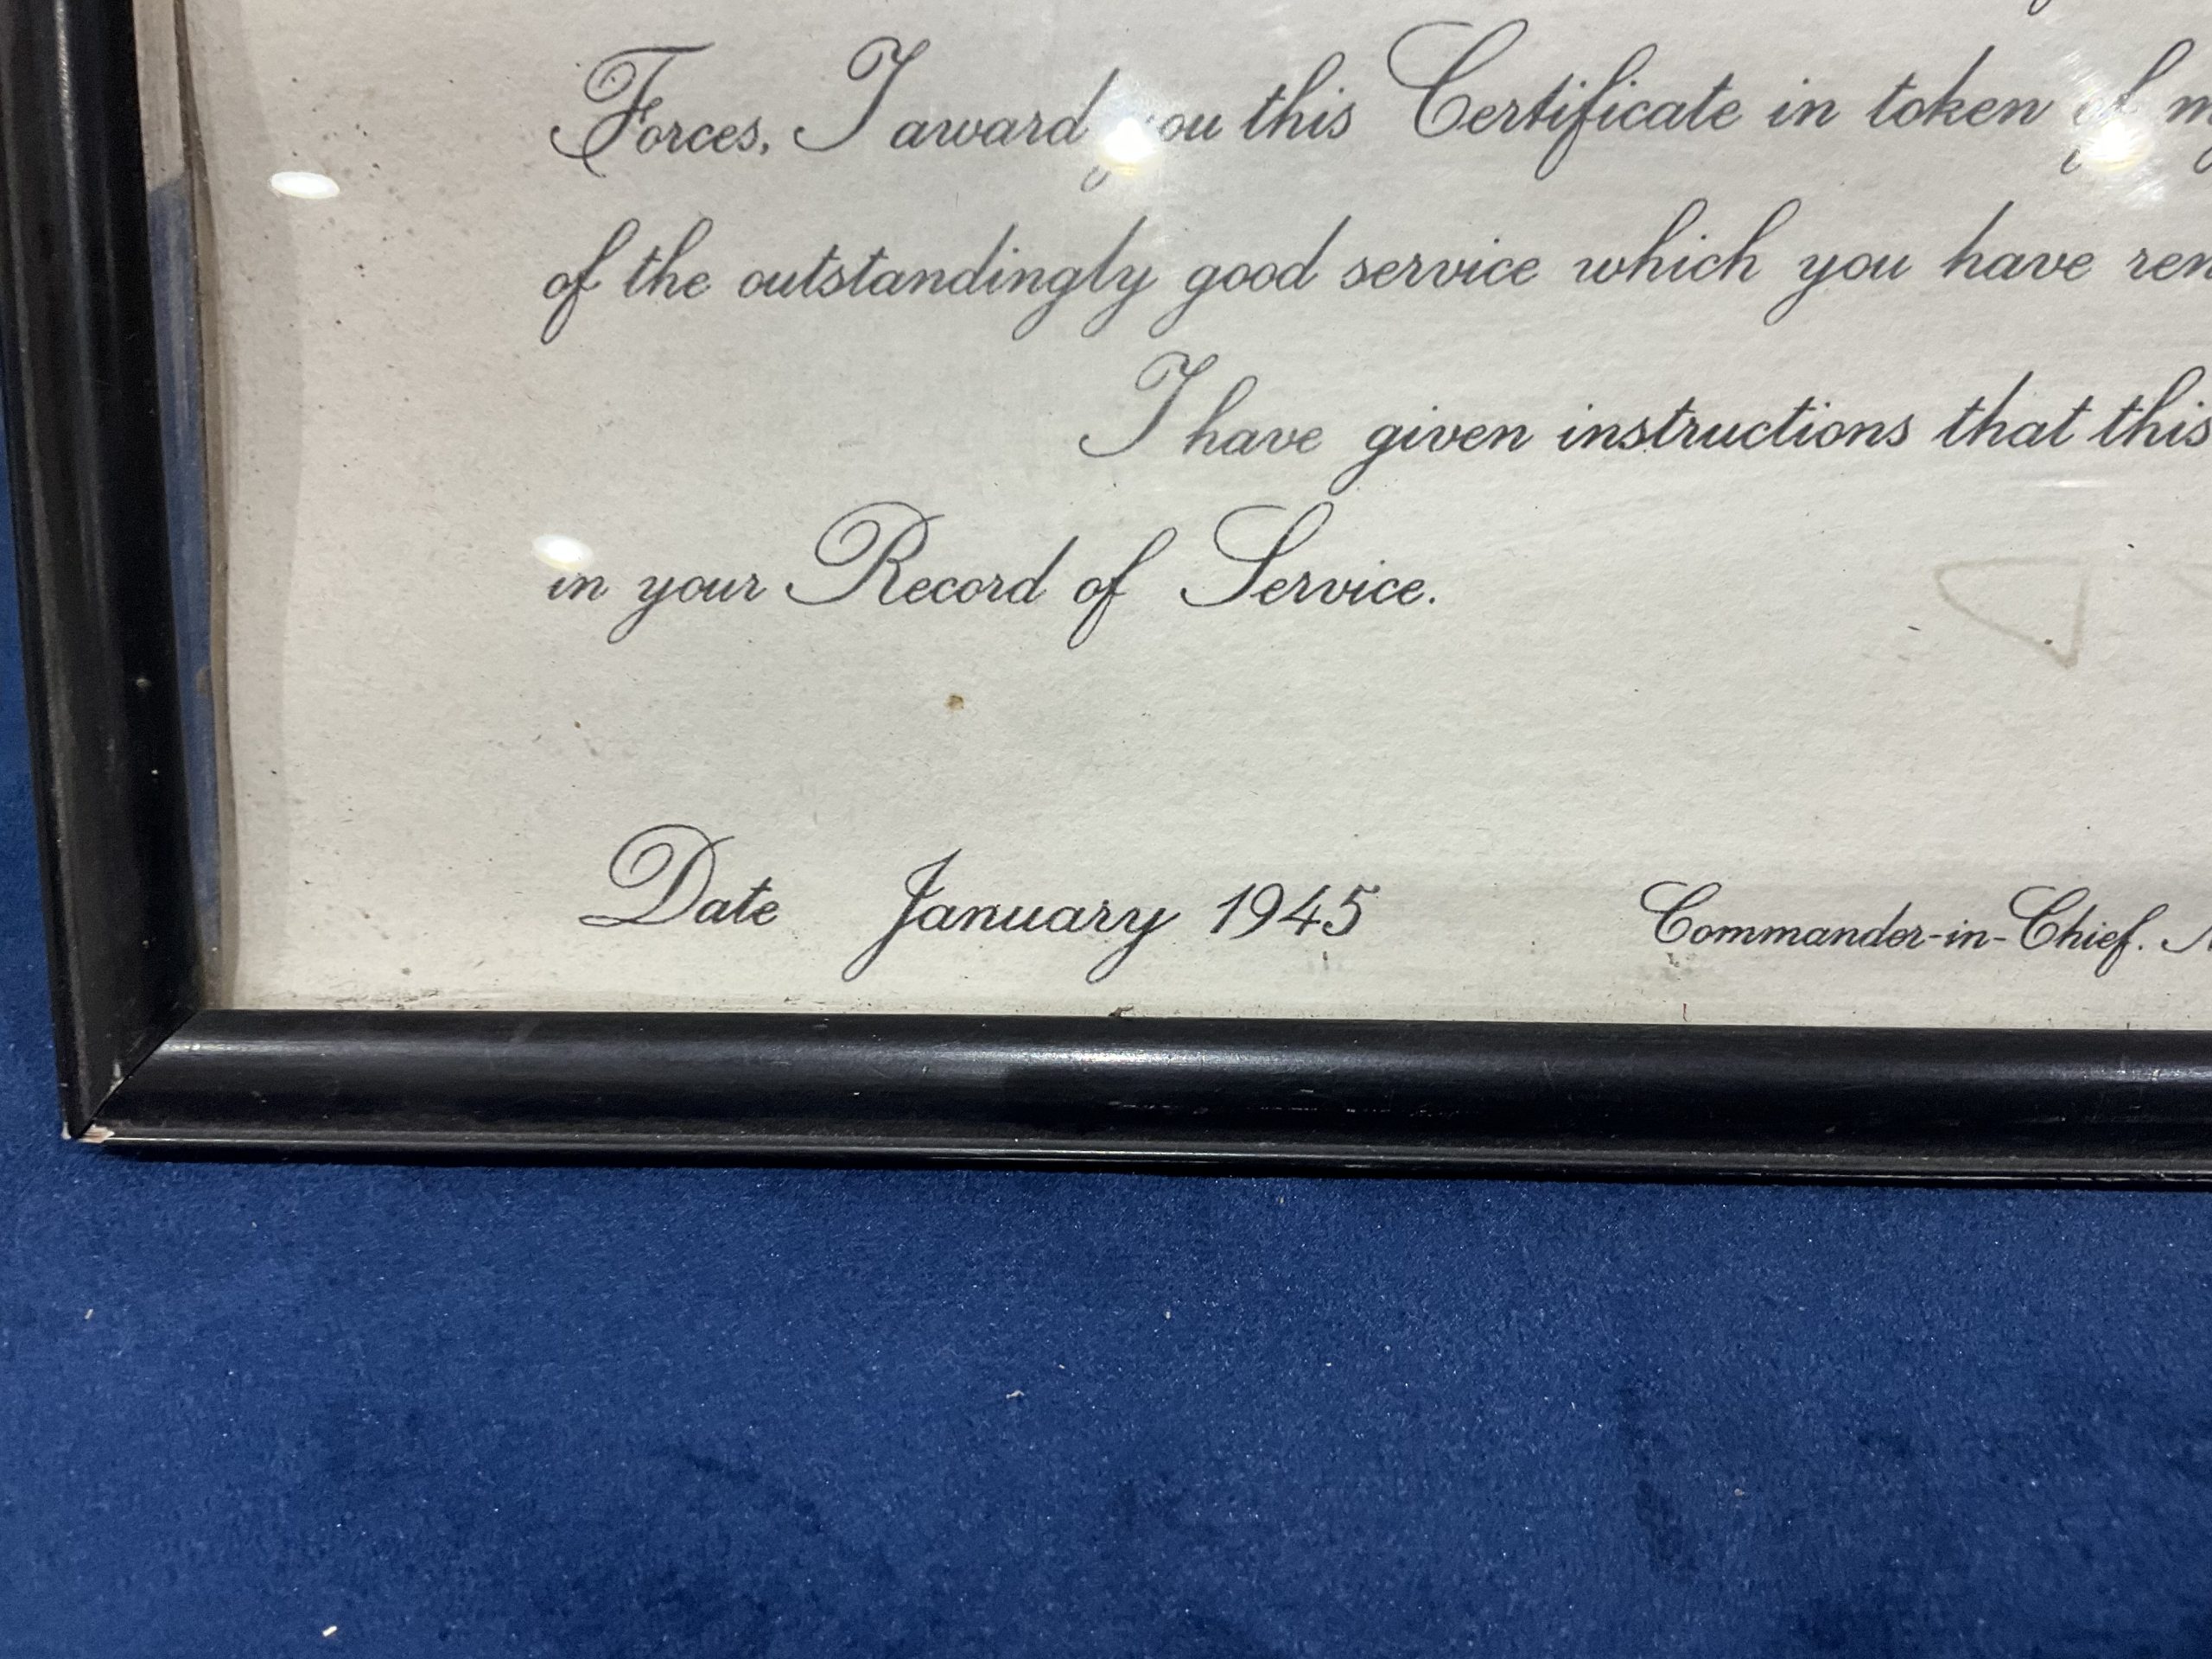 Forces, I award you this Certificate in token of
of the outstandingly good service which you have
I have given instructions that this
in your Record of Service.
Date January 1945 Commander-in-Chief.